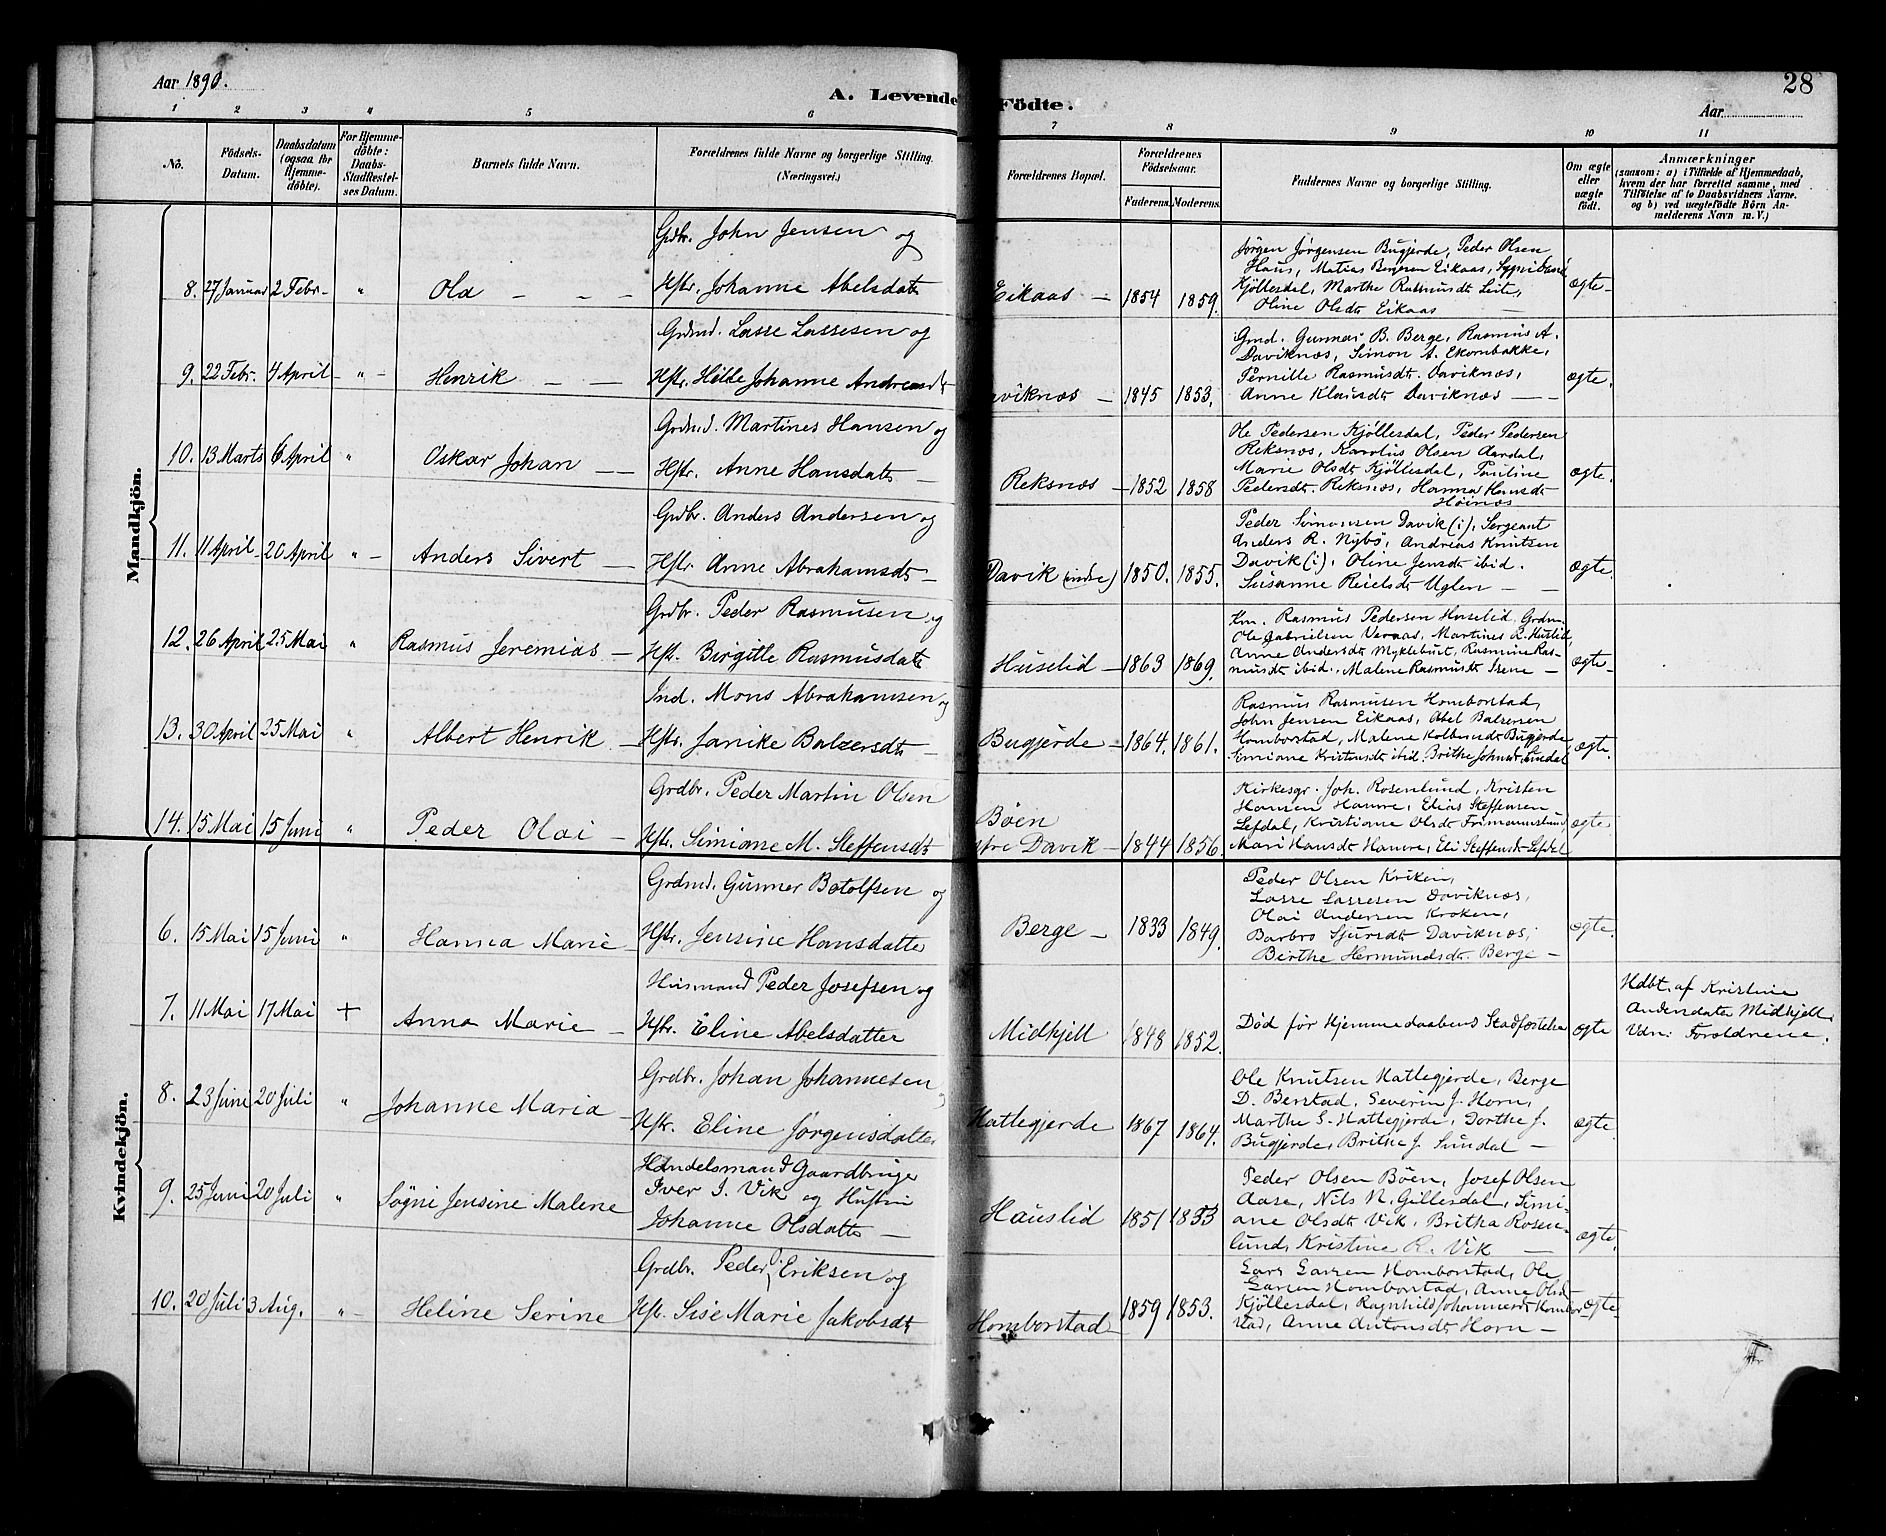 Aar 1890.
A. Levende Födte.
28
Aar
1 2 3 4 5 6 7 8 9 10 11
No.
Födsels-Datum.
Daabsdatum (ogsaa for Hjemme-döbte).
For Hjemme-döbte: Daabs-Stadfestel-ses Datum.
Barnets fulde Navn.
Forældrenes fulde Navne og borgerlige Stilling. (Næringsvei.)
Forældrenes Bopæl.
Forældrenes Födselsaar.
Faderens. Moderens.
Faddernes Navne og borgerlige Stilling.
Om ægte eller uægte födt.
Anmærkninger
(saasom: a) i Tilfælde af Hjemmedaab,
hvem der har forrettet samme, med
Tilföielse af to Daabsvidners Navne,
og b) ved uægtefödte Börn An-
melderens Navn m. V.)
Mandkjön.
8. 27 Januar 2 Febr. " Ola
Grdbr. John Jensen og
Hstr. Johanne Abelsdatt
Eikaas 1854 1859.
Jørgen Jørgensen Bugjerde, Peder Olsen
Haus, Matias Bergesen Eikaas,
Kjöllesdal, Marthe Rasmusdt Leite,
Oline Olsdt Eikaas
ægte
9. 22 Febr. 4 April " Henrik
Grdmd. Lasse Lassesen og
Hstr. Hille Johanne Andreasdt
Daviknæs 1845 1853.
Gmd. Gunnar B. Berge, Rasmus A.
Daviknæs, Simon A. Ekornbakke,
Pernille Rasmusdt. Daviknæs,
Anne Klausdt Daviknæs
ægte.
10. 13 Marts 6 April " Oskar Johan
Grdmd. Martines Hansen og
Hstr. Anne Hansdatt
Reksnæs 1852 1858
Ole Pedersen Kjöllesdal, Peder Pedersen
Reksnæs, Karolus Olsen Aardal,
Marie Olsdt Kjöllesdal, Pauline
Pedersdt. Reksnæs, Hanna Hansdt
Höinæs
ægte.
11. 11 April 20 April " Anders Sivert
Grdbr. Anders Andersen og
Hstr Anne Abrahamsdt
Davik (indre) 1850. 1855.
Peder Simonsen Davik (i), Sergeant
Anders R. Nybø, Andreas Knutsen
Davik (i), Oline Jensdt ibid.
Susanne Reielsdt Uglen
ægte.
12. 26 April 25 Mai " Rasmus Jeremias
Grdbr. Peder Rasmusen og
Hst. Birgitte Rasmusdatt
Huselid 1863 1869.
Km. Rasmus Pedersen Huselid, Grdm.
Ole Gabrielsen Veraas, Martines R. Huslid,
Anne Andersdt Myklebust, Rasmine Ras-
musdt ibid., Malene Rasmusdt
ægte
13. 30 April 25 Mai " Albert Henrik
Ind. Mons Abrahamsen og
Hstr. Janike Balzersdt
Bugjerde 1864. 1861.
Rasmus Rasmusen Homborstad,
John Jensen Eikaas, Abel Balzersen
Homborstad, Malene Bugjerde
Simiane Kristensdt ibid. Brithe Johnsdt Sindal
ægte.
14. 15 Mai 15 Juni " Peder Olai
Grdbr. Peder Martin Olsen
Hstr. Simiane M. Steffensdt
Böen
Davik 1844 1856.
Kirkesgr. Joh. Rosenlund, Kristen
Hansen Hamre, Elias Steffensen
Lefdal, Kristiane Olsdt Frimannslund,
Mari Hansdt Hamre, Eli Steffensdt Lefdal
ægte
Kvindekjön.
6. 15 Mai 15 Juni " Hanna Marie
Grdmd. Gunner Botolfsen og
Hstr. Jensine Hansdatter
Berge 1833 1849.
Peder Olsen Kriken,
Lasse Lassesen Daviknæs,
Olai Andersen Kroken,
Barbro Sjursdt Daviknæs,
Birthe Hermundsdt. Berge
ægte.
7. 11 Mai 17 Mai + Anna Marie
Husmand Peder Josefsen og
Hstr. Eline Abelsdatter
Midkjell 1848 1852.
Död för Hjemmedaabens Stadfæstelse
ægte
Hdbt. af Kristine
Andersdatt Midkjell.
Vdn: Forældrene.
8. 23 Juni 20 Juli " Johanne Maria
Grdbr. Johan Johannesen
Hstr. Eline Jørgensdatter
Hattegjerde 1867 1864.
Ole Knutsen Hattegjerde, Berge
D. Berstad, Severin J. Horn,
Marthe S. Hattegjerde, Dorthe J.
Bugjerde, Brithe J. Sundal
ægte.
9. 25 Juni 20 Juli " Søgni Jensine Malene
Handelsmand Gaardbruger
Iver I. Vik og Hustru
Johanne Olsdatt
Hauslid 1851 1853
Peder Olsen Böen, Josef Olsen
Aase, Nils N. Gillesdal, Simi-
ane Olsdt Vik, Britha Rosen-
lund, Kristine R. Vik
ægte.
10. 20 Juli 3 Aug. " Heline Serine
Grdbr. Peder Eriksen og
Hst. Sise Marie Jakobsdt
Homborstad 1859 1853.
Lars Larsen Homborstad, Ole
Larsen Homborstad, Anne Olsdt
Kjöllesdal, Ragnhild Johannesdt Hombor-
stad, Anne Antonsdt Horn
ægte